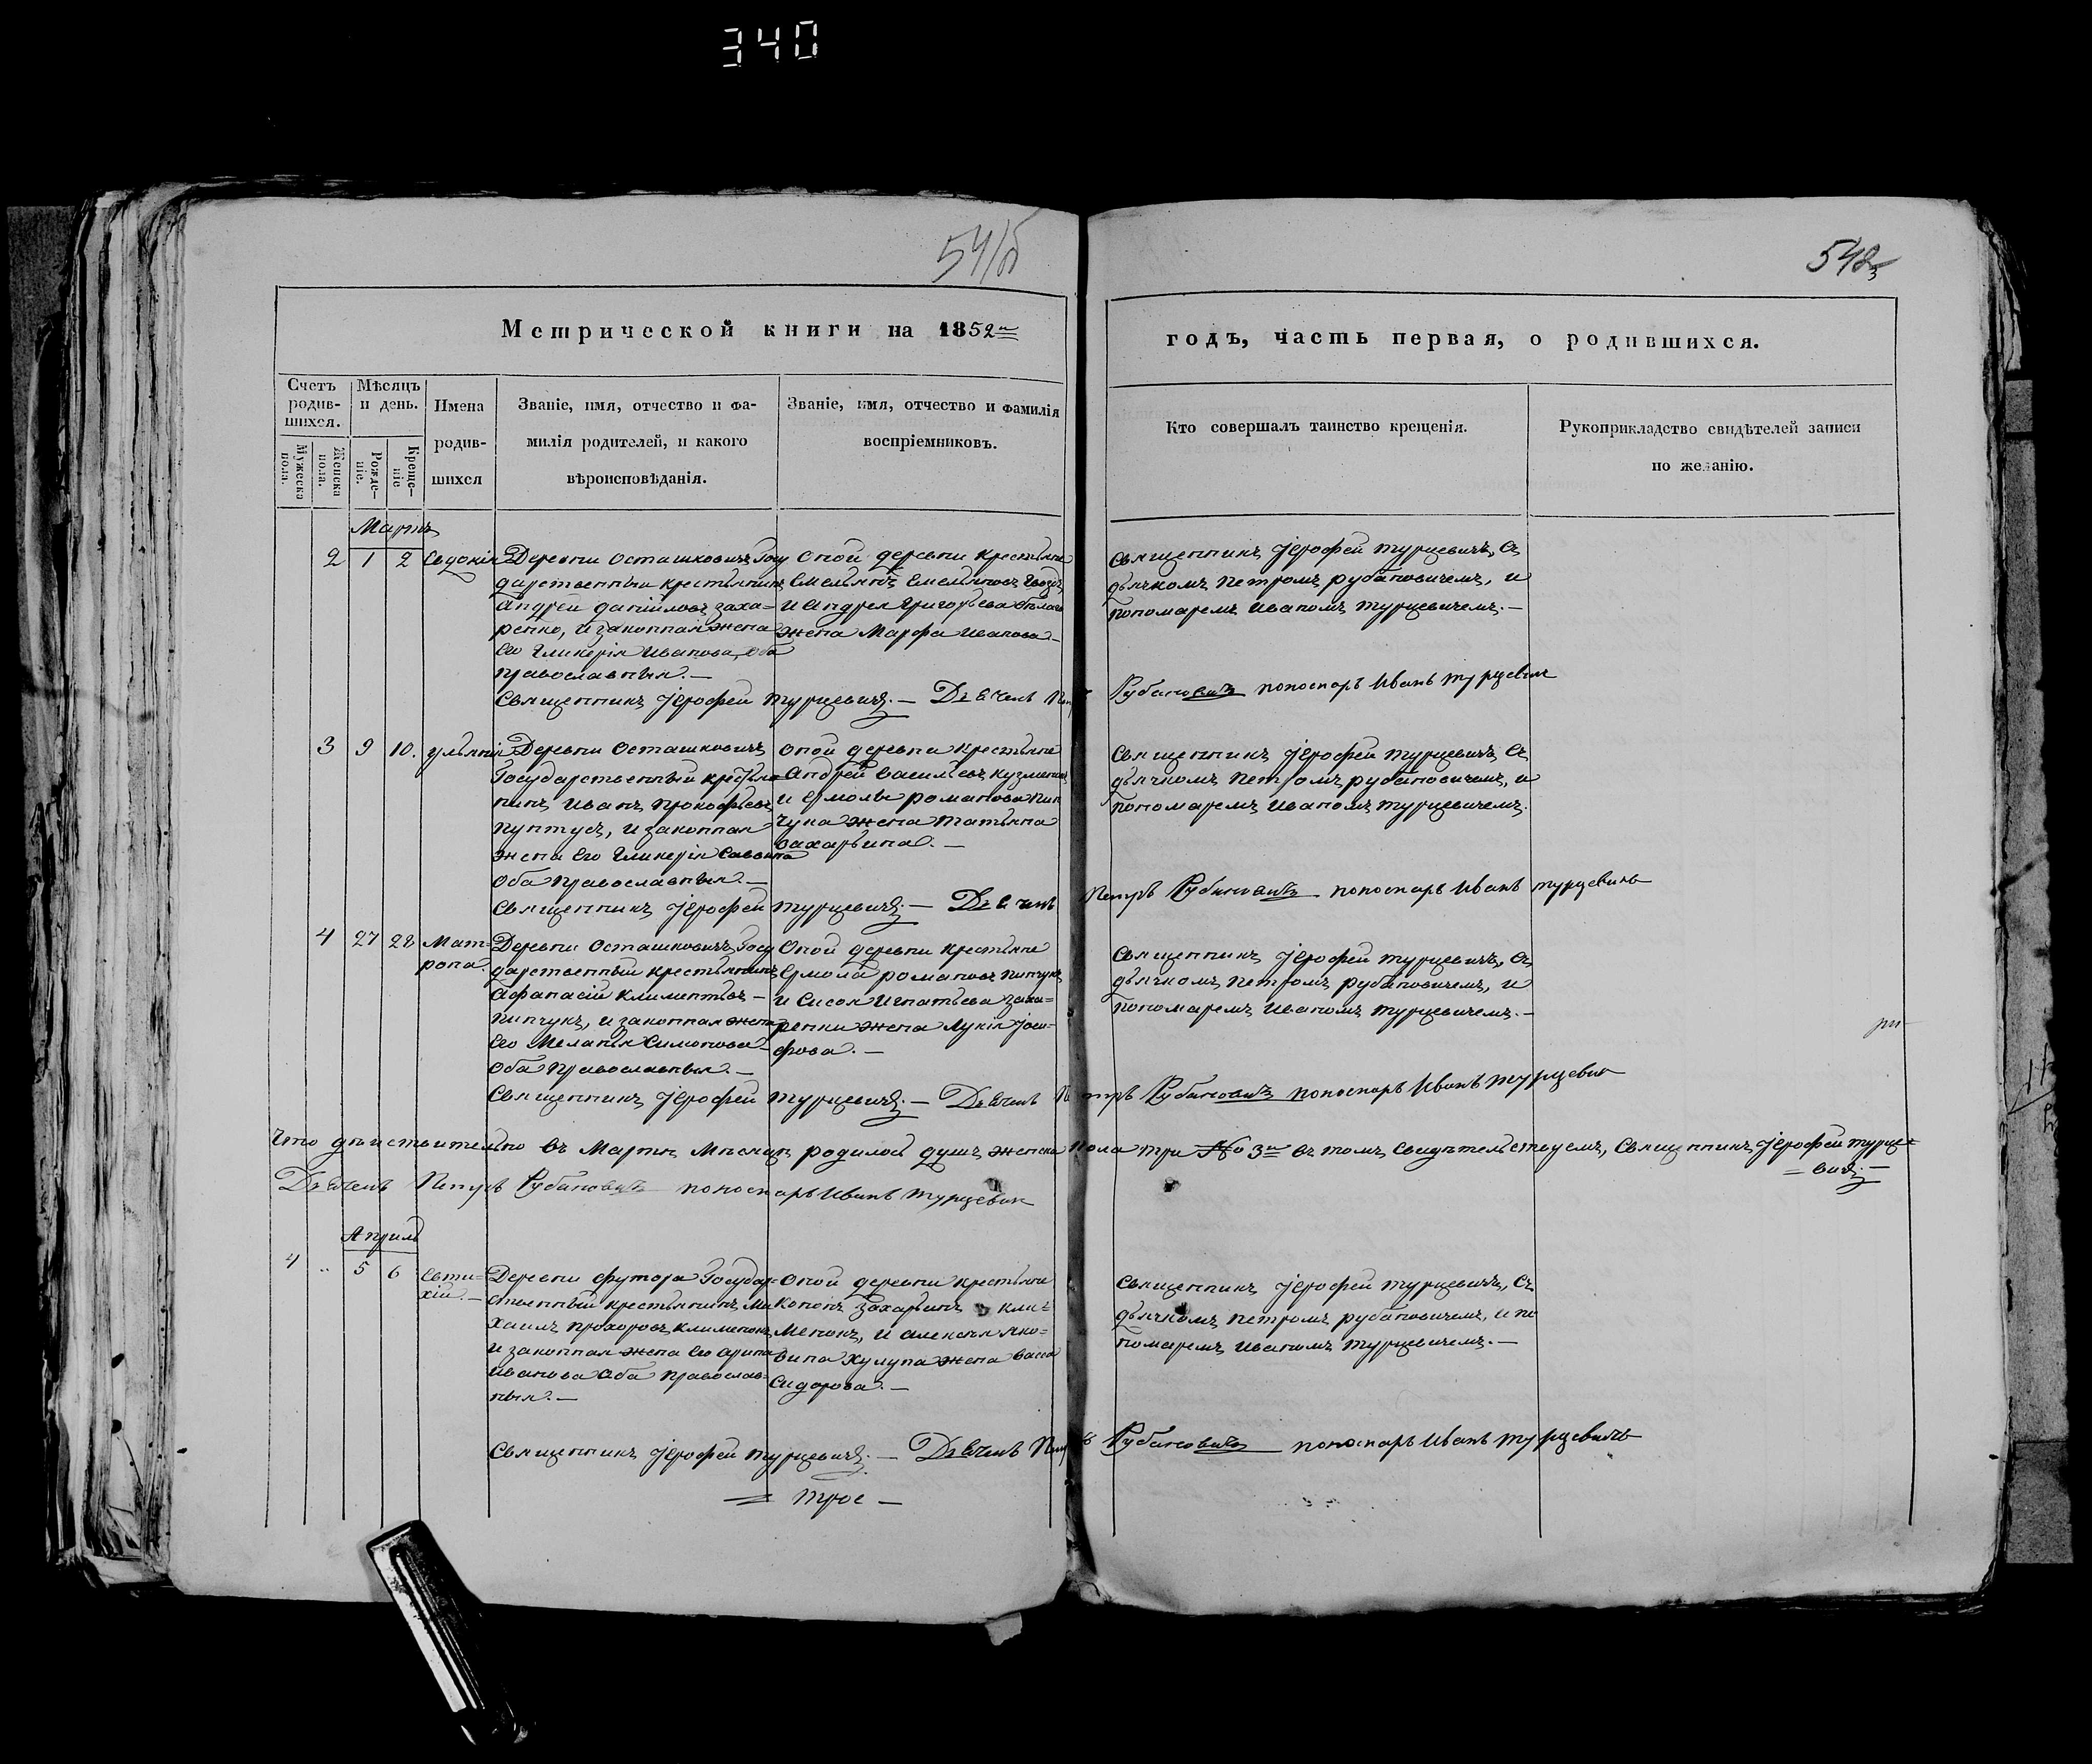 340
541б
542
Метрической книги на 1852й
годъ, часть первая, о родившихся.
Счетъ родившихся.
Мужеска пола.
Женска пола.
Мѣсяцъ и день.
Рожденіе.
Крещеніе
Имена родившихся
Званіе, имя, отчество и фамилія родителей, и какого вѣроисповѣданія.
Званіе, имя, отчество и фамилія воспріемниковъ.
Кто совершалъ таинство крещенія.
Рукоприкладство свидѣтелей записи по желанію.
Мартъ
2 1 2 Евдокія
Деревни Осташковичъ Госу
дарственный крестьянинъ
Андрей Даніиловъ Заха-
ренко, и законная жена
Его Гликерія Иванова, оба
православныя.—
Оной деревни крестьяне
Емельянъ Емельяновъ
и Андрея Григорьева
жена Марфа Иванова.—
Священникъ Іерофей Турцевичъ, съ
дьячкомъ Петромъ Рубановичемъ, и
пономаремъ Иваномъ Турцевичемъ.—
Священникъ Іерофей Турцевичъ.— Дьячекъ Петръ Рубановичъ пономарь Иванъ Турцевичъ
3 9 10. Ульянія
Деревни Осташковичъ
Государственный крестья-
нинъ Иванъ Прокофьевъ
Пунтусъ, и законная
жена Его Гликерія Саввина
Оба православныя.—
Оной деревни крестьяне
Андрей Васильевъ Кузменокъ
и Ермолы Романова Пин
чука жена Татьяна
Захарьина.—
Священникъ Іерофей Турцевичъ, съ
дьячкомъ Петромъ Рубановичемъ, и
пономаремъ Иваномъ Турцевичемъ.
Священникъ Іерофей Турцевичъ.— Дьячекъ Петръ Рубановичъ пономарь Иванъ Турцевичъ
4 27 28 Мат=
рона.
Деревни Осташковичъ Госу
дарственный крестьянинъ
Афанасій Климентьевъ—
Пинчукъ, и законная жена
Его Меланья Симонова—
Оба православныя.—
Оной деревни крестьяне
Ермола Романовъ Пинчукъ
и Сисоя Игнатьева Заха=
ренки жена Лукія Іоси=
фова.—
Священникъ Іерофей Турцевичъ, съ
дьячкомъ Петромъ Рубановичемъ, и
пономаремъ Иваномъ Турцевичемъ.—
Священникъ Іерофей Турцевичъ.— Дьячекъ Петръ Рубановичъ пономарь Иванъ Турцевичъ
Что дѣйствительно въ Мартѣ Мѣсяцѣ родилось душъ женска пола три № 3й въ томъ свидѣтельствуемъ, Священникъ Іерофей Турце=
=вичъ.—
Дьячекъ Петръ Рубановичъ пономарь Иванъ Турцевичъ
Апрѣль
4 " 5 6 Евти=
хій.—
Деревни Футора Государ=
ственный крестьянинъ Ми
хаилъ Прохоровъ Клименокъ
и законная жена Его Арина
Иванова Оба православ=
ныя.—
Оной деревни крестьяне
Кононъ Захарьинъ Кли=
менокъ, и Алексѣя Яко=
вина Хулупа жена Васса
Сидорова.—
Священникъ Іерофей Турцевичъ, съ
дьячкомъ Петромъ Рубановичемъ, и по
номаремъ Иваномъ Турцевичемъ.—
Священникъ Іерофей Турцевичъ.— Дьячекъ Петръ Рубановичъ пономарь Иванъ Турцевичъ
= трое —